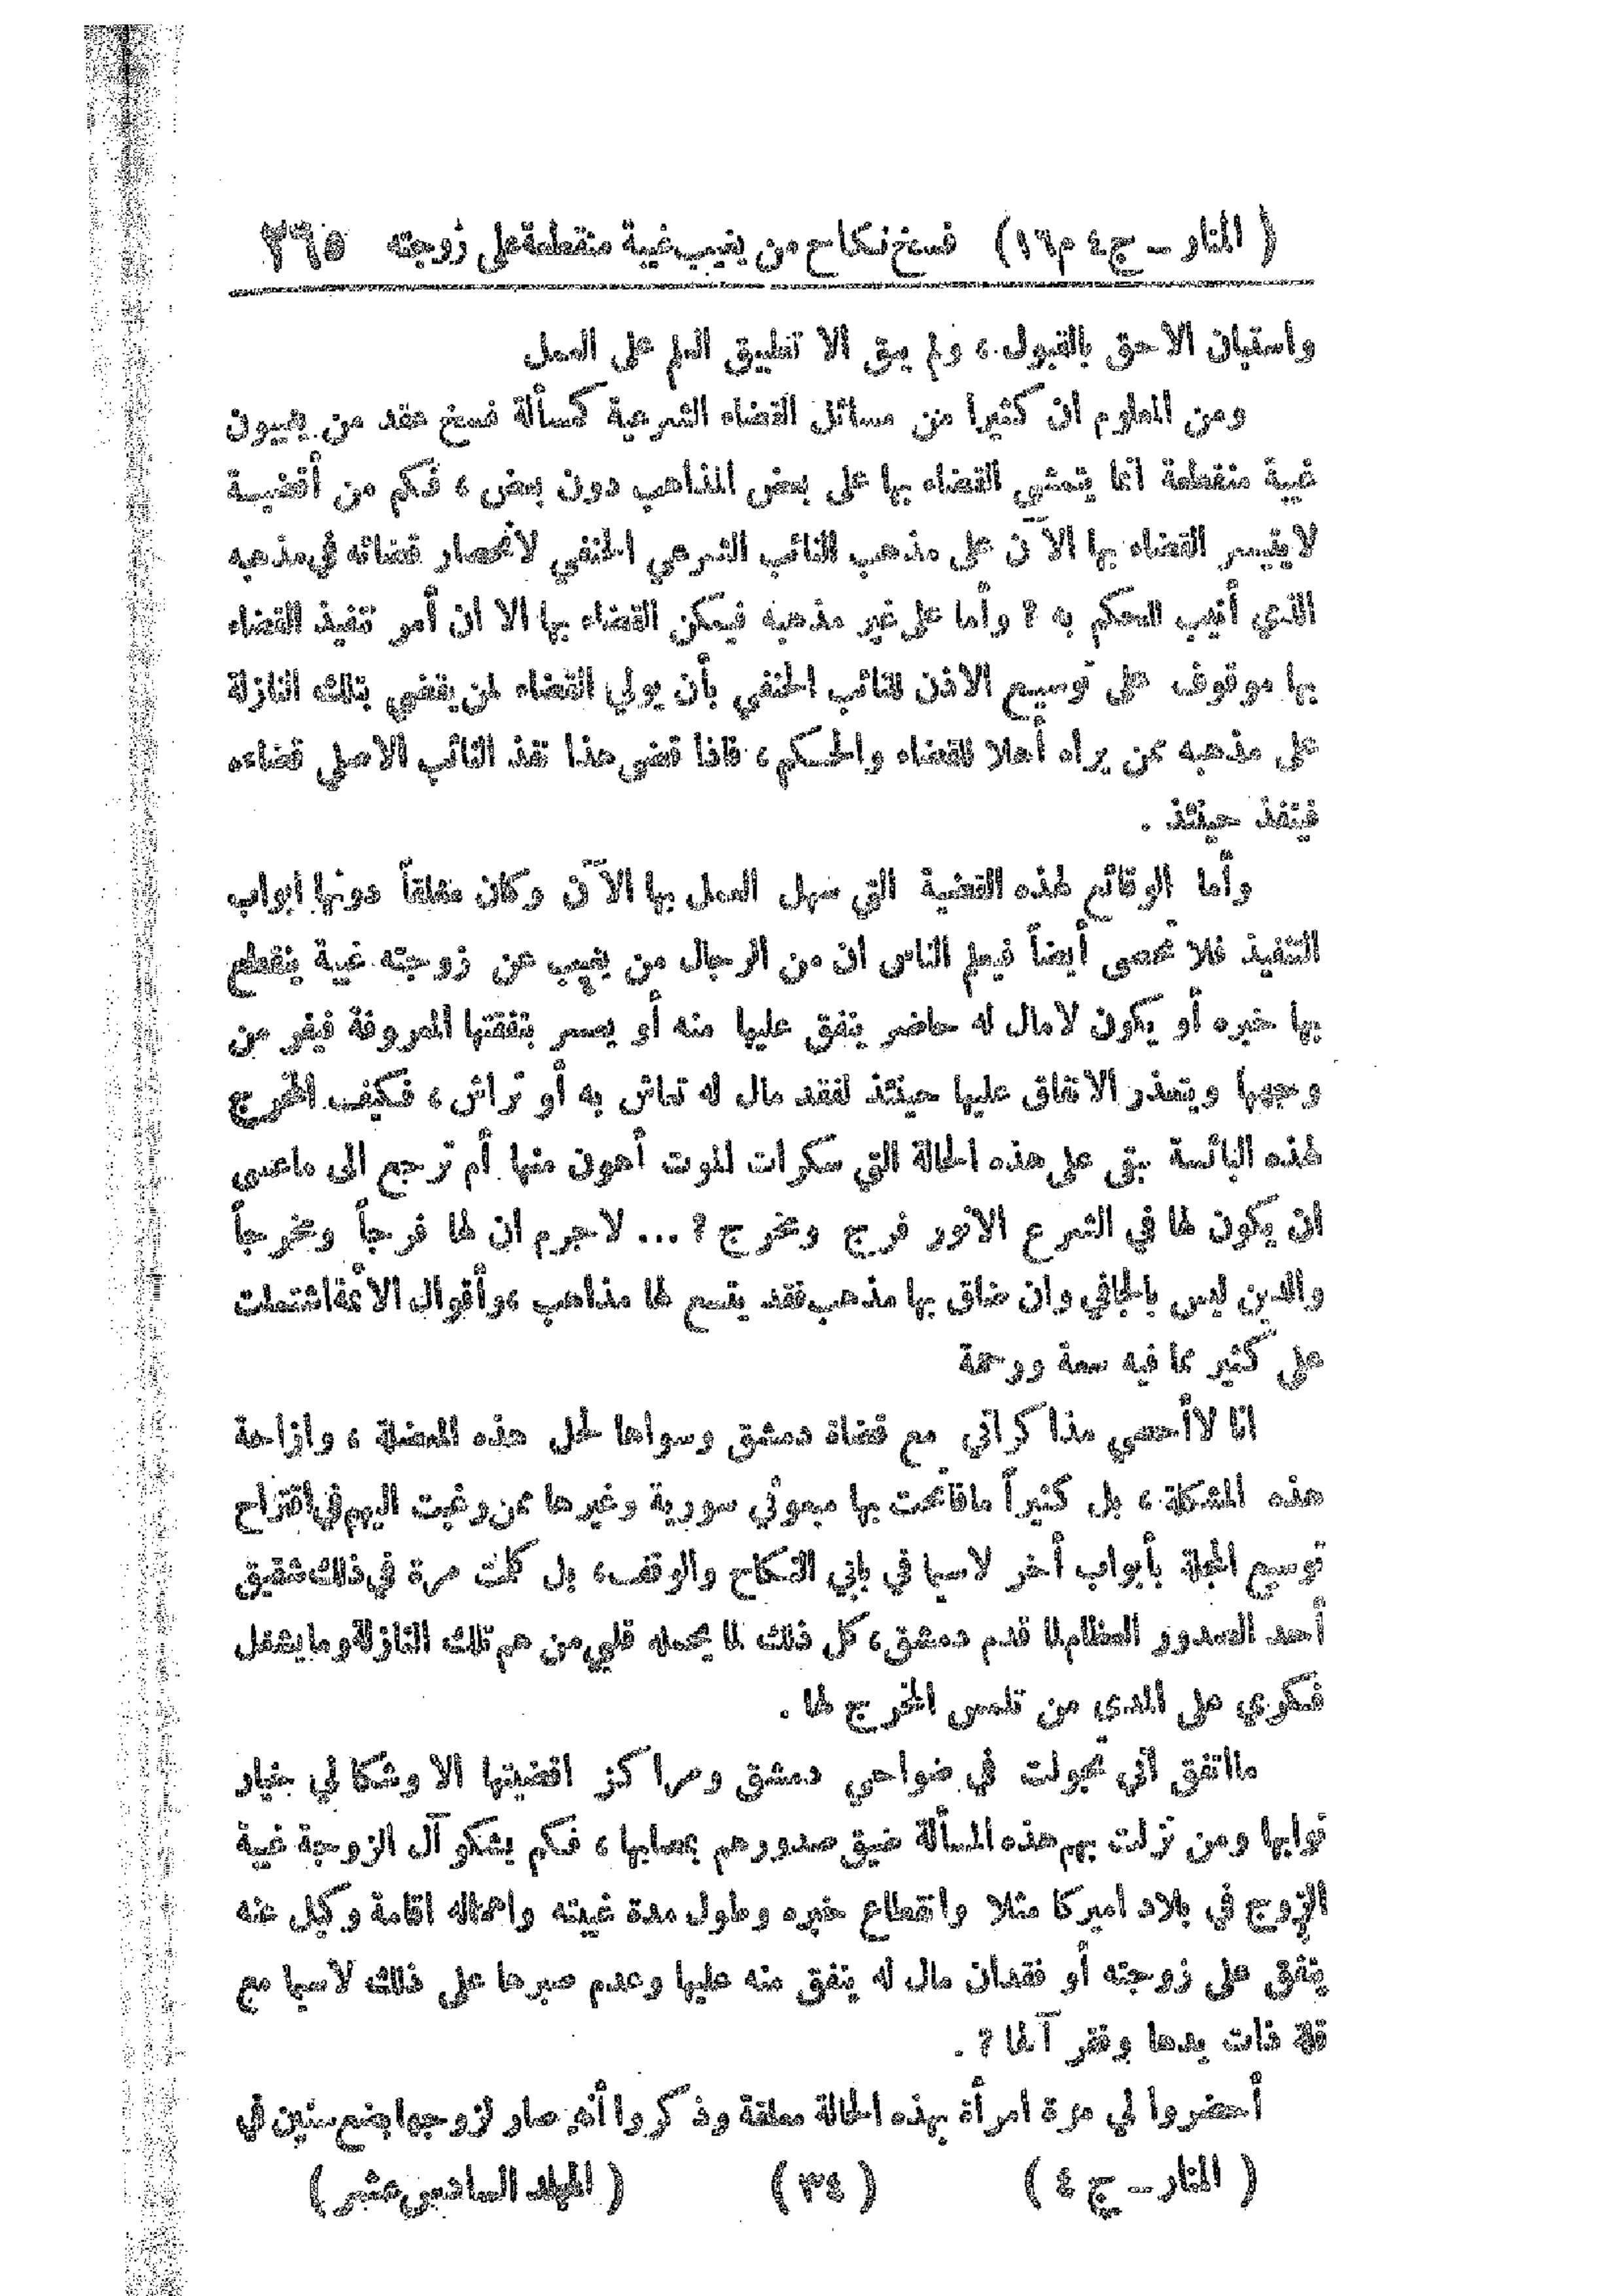 ( المنار – ج٤ م١٦) فسخ نكاح من يغيب غيبة منقطعة على زوجته ٢٦٥
واستبان الاحق بالقبول ، ولم يبق الا تطبيق العلم على العمل
ومن المعلوم ان كثيرا من مسائل القضاء الشرعية كمسألة فسخ عقد من يغيبون
غيبة منقطعة انما يتمشى القضاء بها على بعض المذاهب دون بعض ، فكم من أقضية
لا يتيسر القضاء بها الآن على مذهب النائب الشرعي الحنفي لانحصار قضائه في مذهبه
الذي أنيب للحكم به ؟ وأما على غير مذهبه فيمكن القضاء بها الا ان أمر تنفيذ القضاء
بها موقوف على توسيع الاذن للنائب الحنفي بأن يولي القضاء لمن يقضي بتلك النازلة
على مذهبه ممن يراه أهلا للقضاء والحكم ، فاذا قضى هذا نفذ النائب الاصلي قضاءه
فينفذ حينئذ .
وأما الوقائع لهذه القضية التي سهل العمل بها الآن وكان مغلقاً دونها ابواب
التنفيذ فلا تحصى أيضاً فيعلم الناس ان من الرجال من يغيب عن زوجته غيبة ينقطع
بها خبره أو يكون لا مال له حاضر ينفق عليها منه أو يعسر بنفقتها المعروفة فيفر من
وجهها ويتعذر الانفاق عليها حينئذ لفقد مال له تعاش به أو تراش ، فكيف المخرج
لهذه البائسة تبقى على هذه الحالة التي سكرات الموت أهون منها أم ترجع الى ما عسى
ان يكون لها في الشرع الانور فرج ومخرج ؟ ... لاجرم ان لها فرجاً ومخرجاً
والدين ليس بالجافي وان ضاق بها مذهب فقد يتسع لها مذاهب ، وأقوال الائمة اشتملت
على كثير مما فيه سعة ورحمة
انا لا أحصي مذاكراتي مع قضاة دمشق وسواها لحل هذه المعضلة ، وازاحة
هذه المشكلة ، بل كثيراً ما فاتحت بها مبعوثي سورية وغيرها ممن رغبت اليهم في اقتراح
توسيع المجلة بأبواب أخر لاسيما في بابي النكاح والوقف ، بل كلمت مرة في ذلك شقيق
أحد الصدور العظام لما قدم دمشق ، كل ذلك لما يحمله قلبي من هم تلك النازلة وما يشغل
فكري على المدى من تلمس المخرج لها .
ما اتفق اني تجولت في ضواحي دمشق ومراكز اقضيتها الا وشكا لي خيار
نوابها ومن نزلت بهم هذه المسألة ضيق صدورهم بمصابها ، فكم يشكو آل الزوجة غيبة
الزوج في بلاد اميركا مثلا وانقطاع خبره وطول مدة غيبته واهماله اقامة وكيل عنه
ينفق على زوجته أو فقدان مال له ينفق منه عليها وعدم صبرها على ذلك لاسيما مع
قلة ذات يدها وفقر آلها ؟ .
أحضروا لي مرة امرأة بهذه الحالة معلقة وذكروا أنه صار لزوجها بضع سنين في
( المنار – ج ٤ ) ( ٣٤ ) ( المجلد السادس عشر )